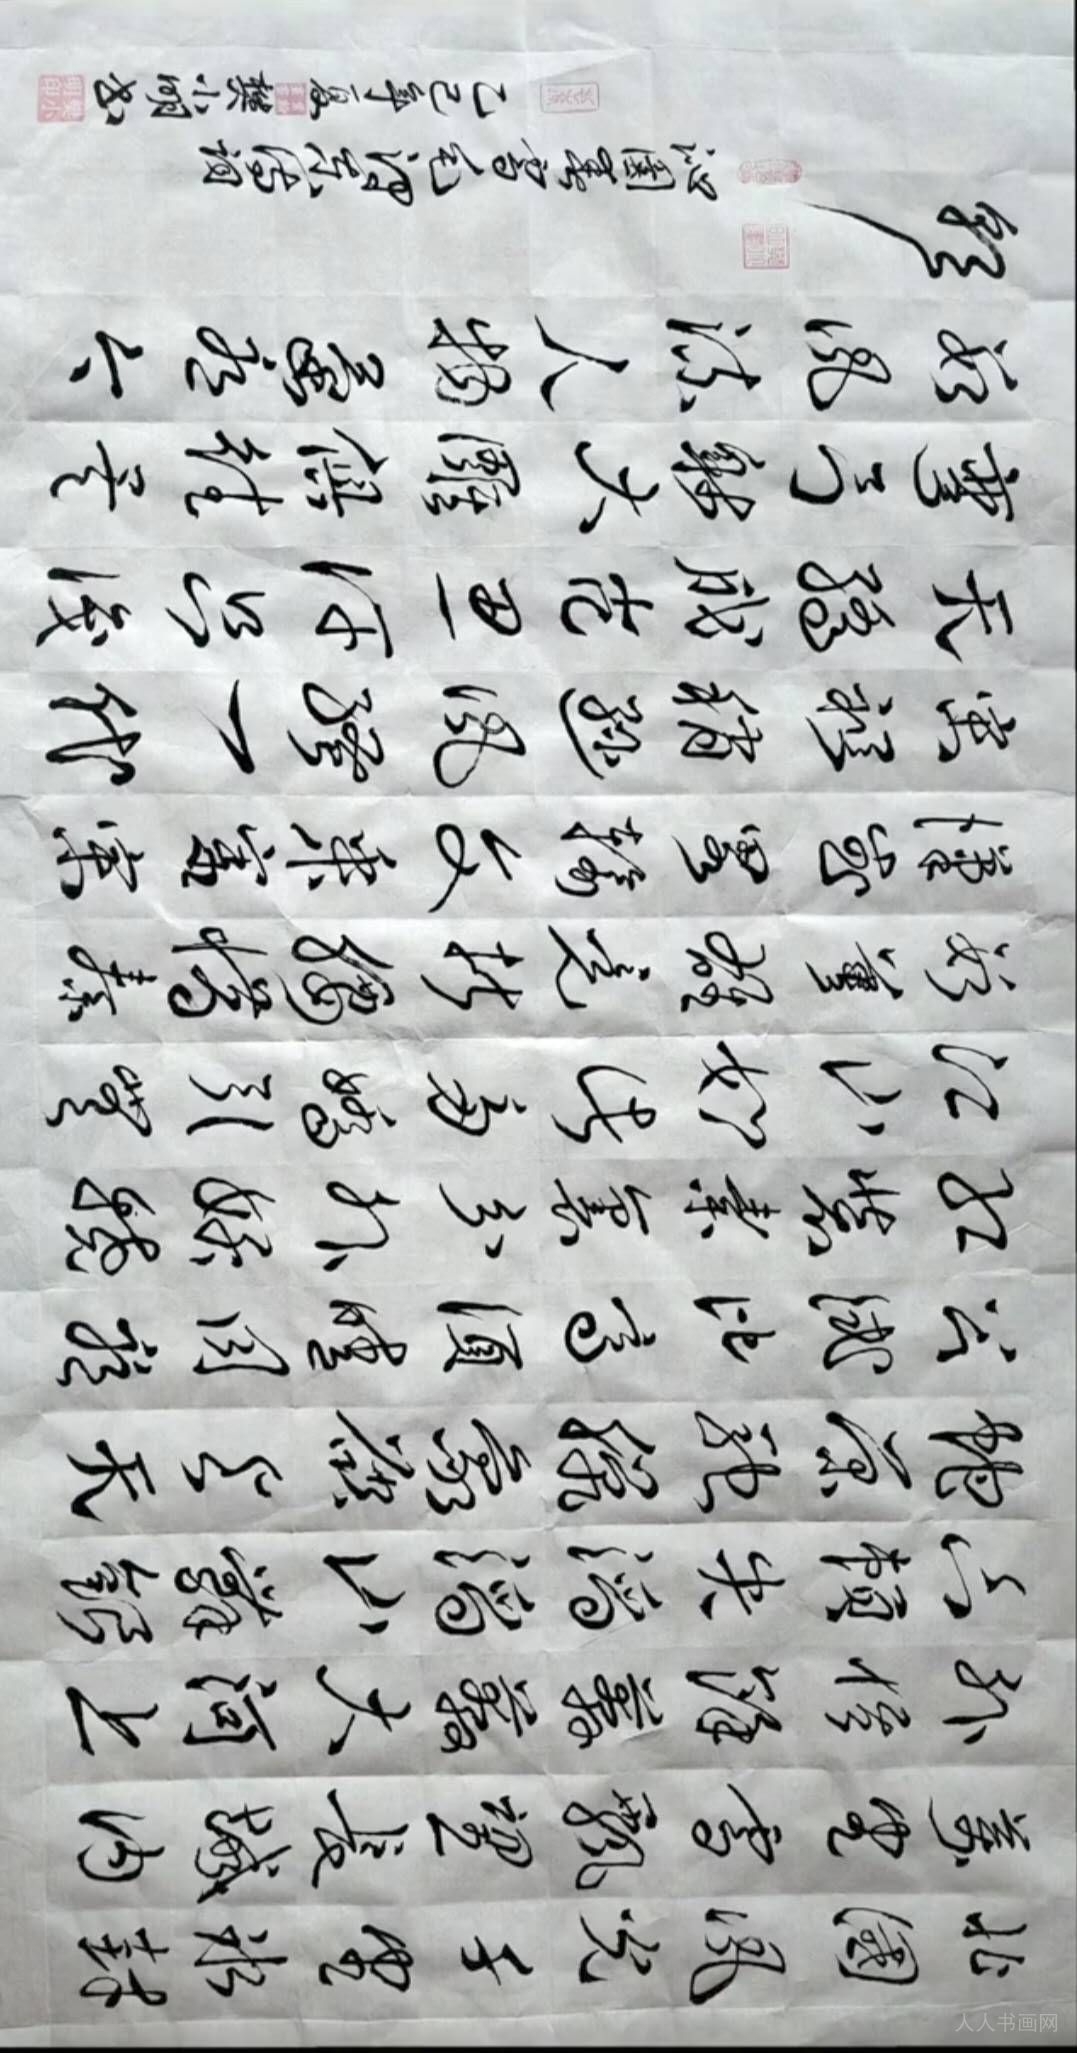 北國風光千里冰封
萬里雪飄望長城内
外惟餘莽莽大河上
下頓失滔滔山舞銀
蛇原馳蠟象欲与天
公試比高須晴日看
紅裝素裹分外妖嬈
江山如此多嬌引無
數英雄競折腰惜秦
漢武略輸文采唐宗
宋祖稍遜風騷一代
天驕成吉思汗只識
彎弓射大雕俱往矣
數風流人物還看今
朝
沁園春雪毛澤東詩詞
乙巳年夏樊小明书
人人书画网